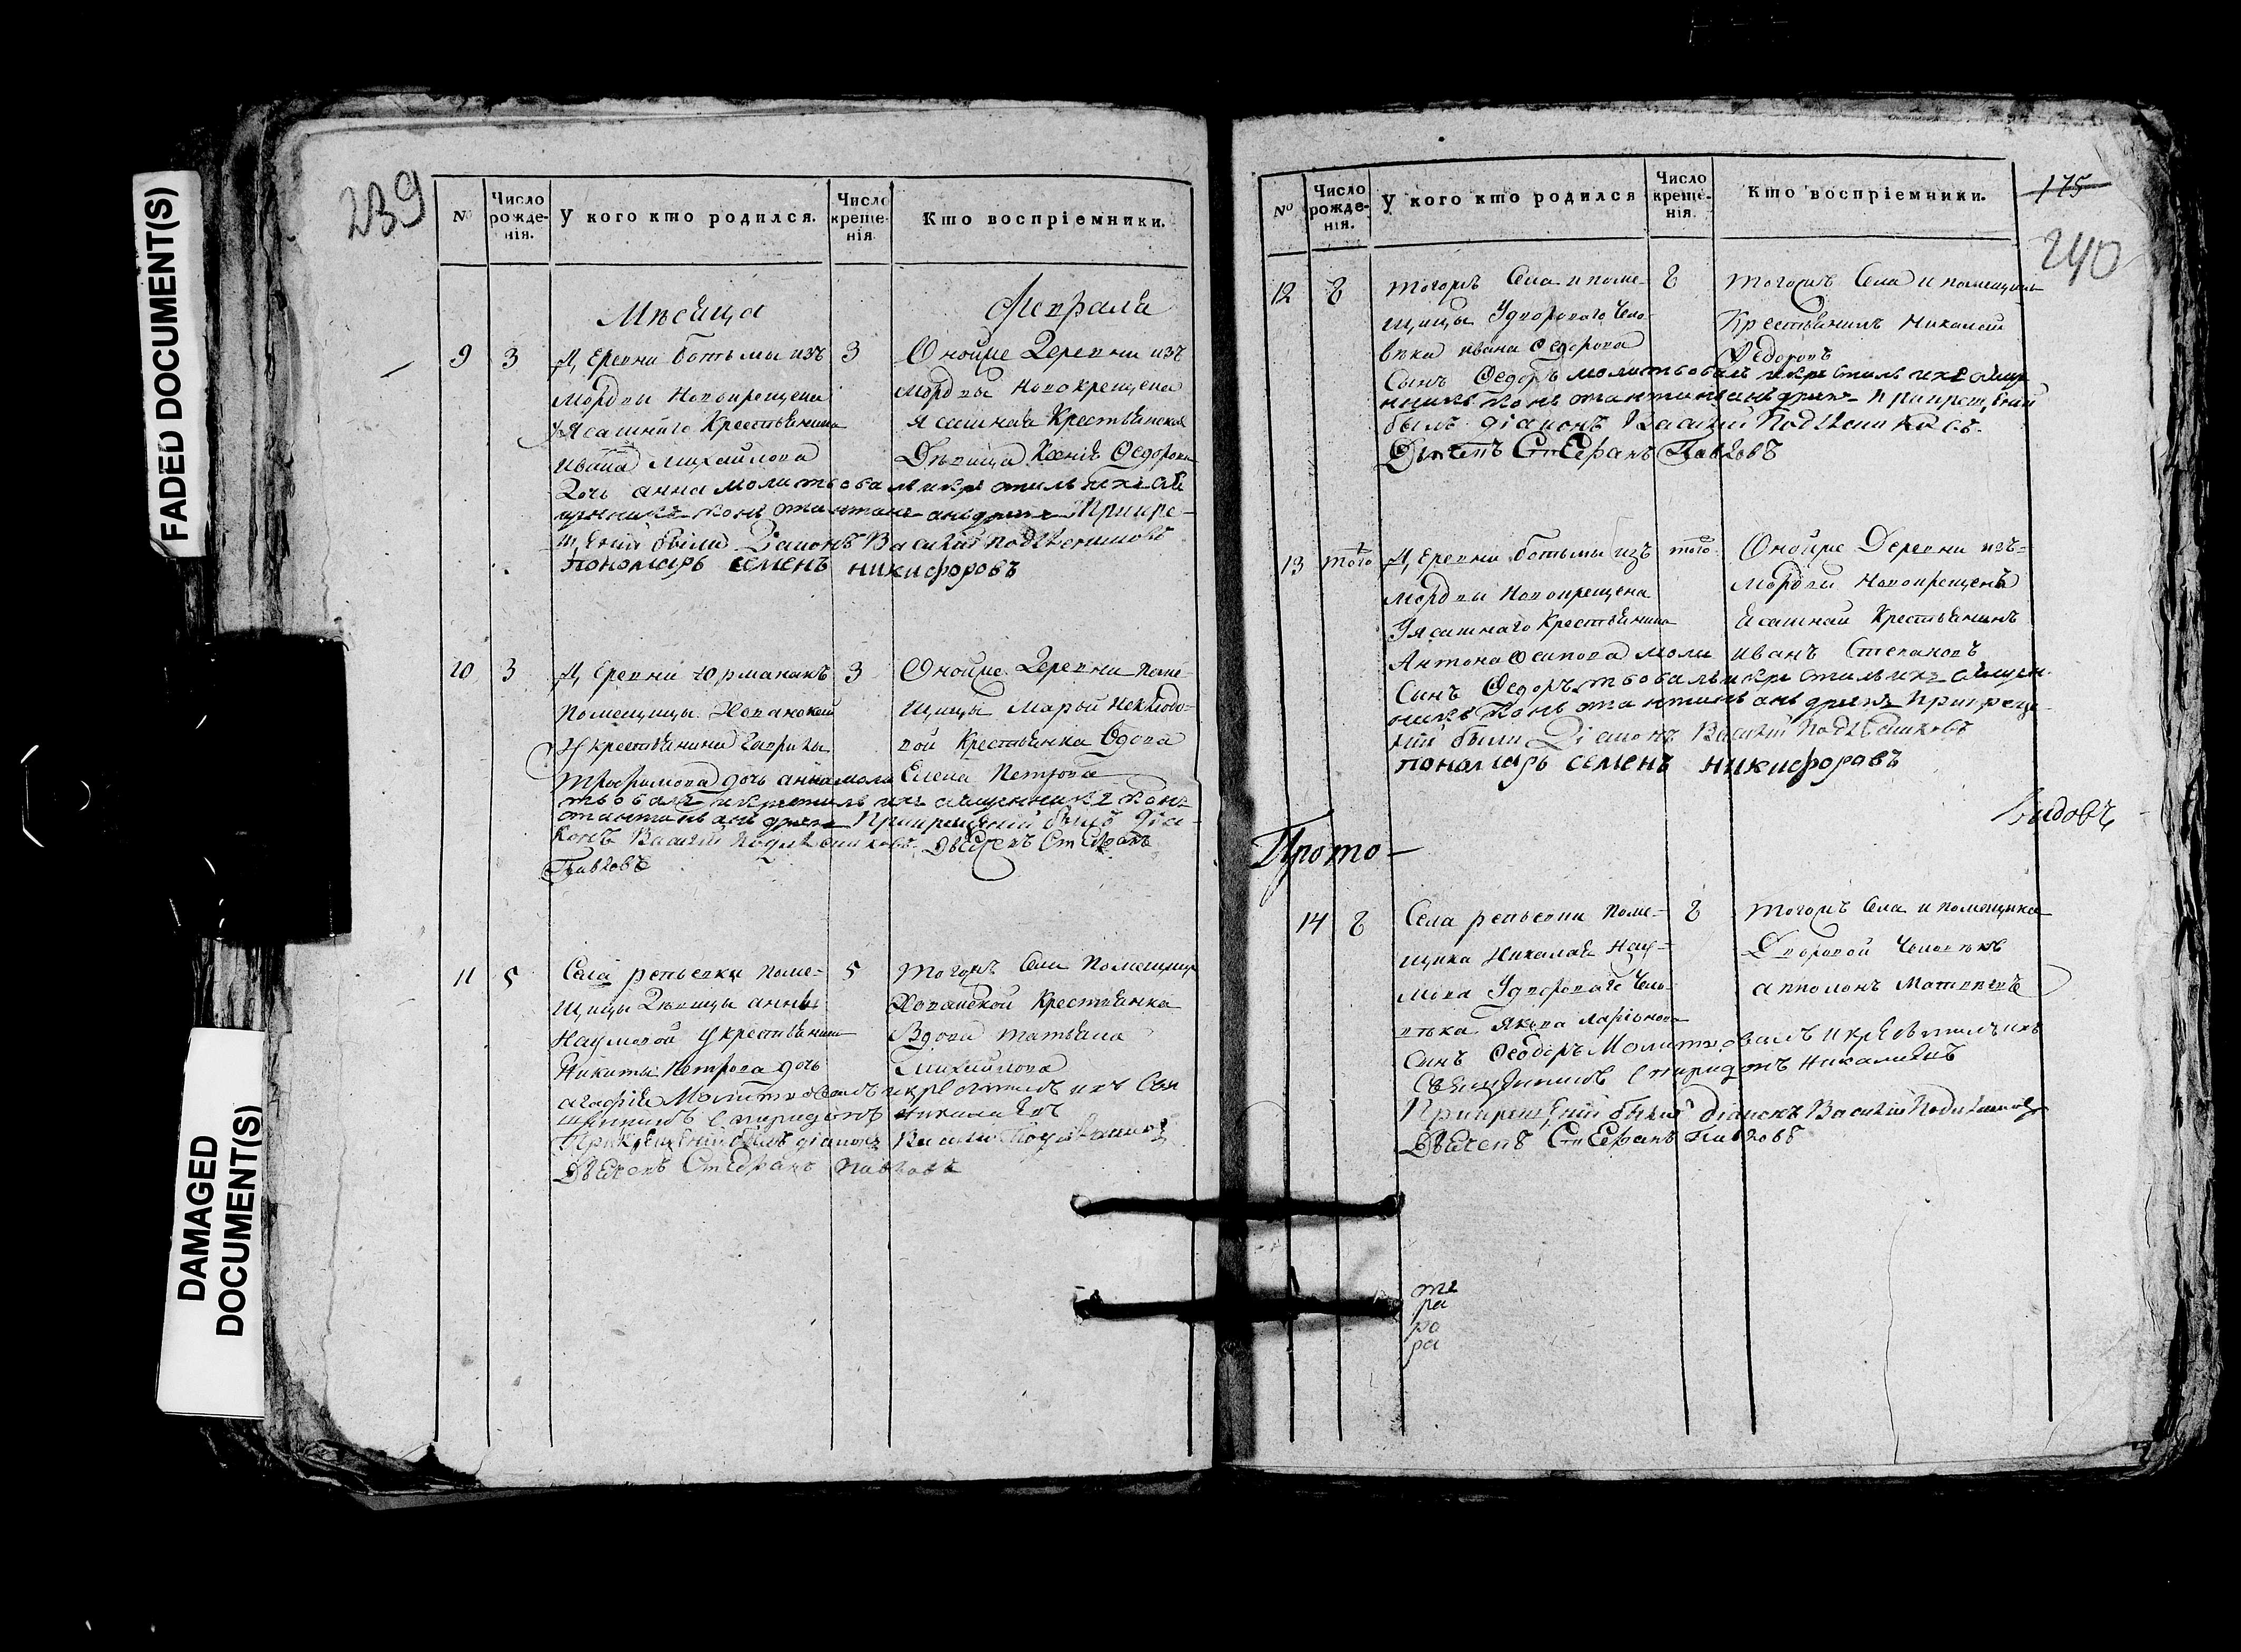 FADED DOCUMENT(S)
DAMAGED
DOCUMENT(S)
239
№
Число рожде- нія.
У кого кто родился.
Число креще- нія.
Кто воспріемники.
Мѣсяца
Февраля
9
3
Деревни Ботьмы изъ
мордвы Новокрещена
у Ясашнаго Крестьянина
Ивана Михайлова
дочь анна молитвовалъ и крстилъ ихъ свя
щенникъ констянтинъ андреевъ При кре-
щеніи были Діаконъ Василій Подъячниковъ
пономарь семенъ никифоровъ
3
Оной же Деревни изъ
мордвы Новокрещена
Ясашная Крестьянская
Дѣвица Ксенія Ѳедорова
10
3
Деревни Юрманакъ
помещицы Хованской
У крестьянина Гаврилы
Трофимова дочь анна моли
твовалъ и крстилъ ихъ священникъ кон
стянтинъ андреевъ При крещеніи былъ Діа-
конъ Василій Дьячекъ Стефанъ
Павловъ
3
Оной же Деревни поме-
щицы Марьи Неклюдо-
вой Крестьянка вдова
Елена Петрова
11
5
Села репьевки поме-
щицы Дѣвицы анны
Наумовой у крестьянина
Никиты Петрова дочь
агафія Молитвовалъ и крестилъ ихъ Свя
щенникъ Спиридонъ Николаевъ
При крещеніи былъ діаконъ Василій
Дьячекъ Стефанъ Павловъ
5
Тогожъ Села Помещицы
Хованской Крестьянка
Вдова Татьяна
Михайлова
№
Число рожде- нія.
У кого кто родился
Число креще- нія.
Кто воспріемники.
175
240
12
8
Тогожъ Села и поме-
щицы У двороваго Чело-
вѣка ивана Ѳедорова
Сынъ Ѳедоръ молитвовалъ и крстилъ ихъ свяще
нникъ констянтинъ андреевъ При крещеніи
былъ діаконъ Василій
Дьячекъ Стефанъ Павловъ
8
Тогожъ Села и помещицы
Крестьянинъ Николай
Ѳедоровъ
13
того
Деревни Ботьмы изъ
мордвы Новокрещена
У ясашнаго Крестьянина
Антона Осипова моли
Сынъ Ѳедоръ твовалъ и крстилъ ихъ священ
никъ констянтинъ андреевъ При креще
ніи были Діаконъ Василій
пономарь семенъ никифоровъ
того
Оной же Деревни изъ
мордвы Новокрещенъ
Ясашной Крестьянинъ
иванъ Степановъ
Видовъ
Прото-
14
8
Села репьевки поме-
щика Николая Нау-
мова У двороваго Чело-
вѣка Якова Ларіонова
сынъ Ѳеодоръ Молитвовалъ и крестилъ ихъ
Священникъ Спиридонъ Николаевъ
При крещеніи были діаконъ Василій
Дьячекъ Стефанъ Павловъ
8
Тогожъ Села и помещика
Дворовой Человекъ
апполонъ Матвеевъ
ра
ра